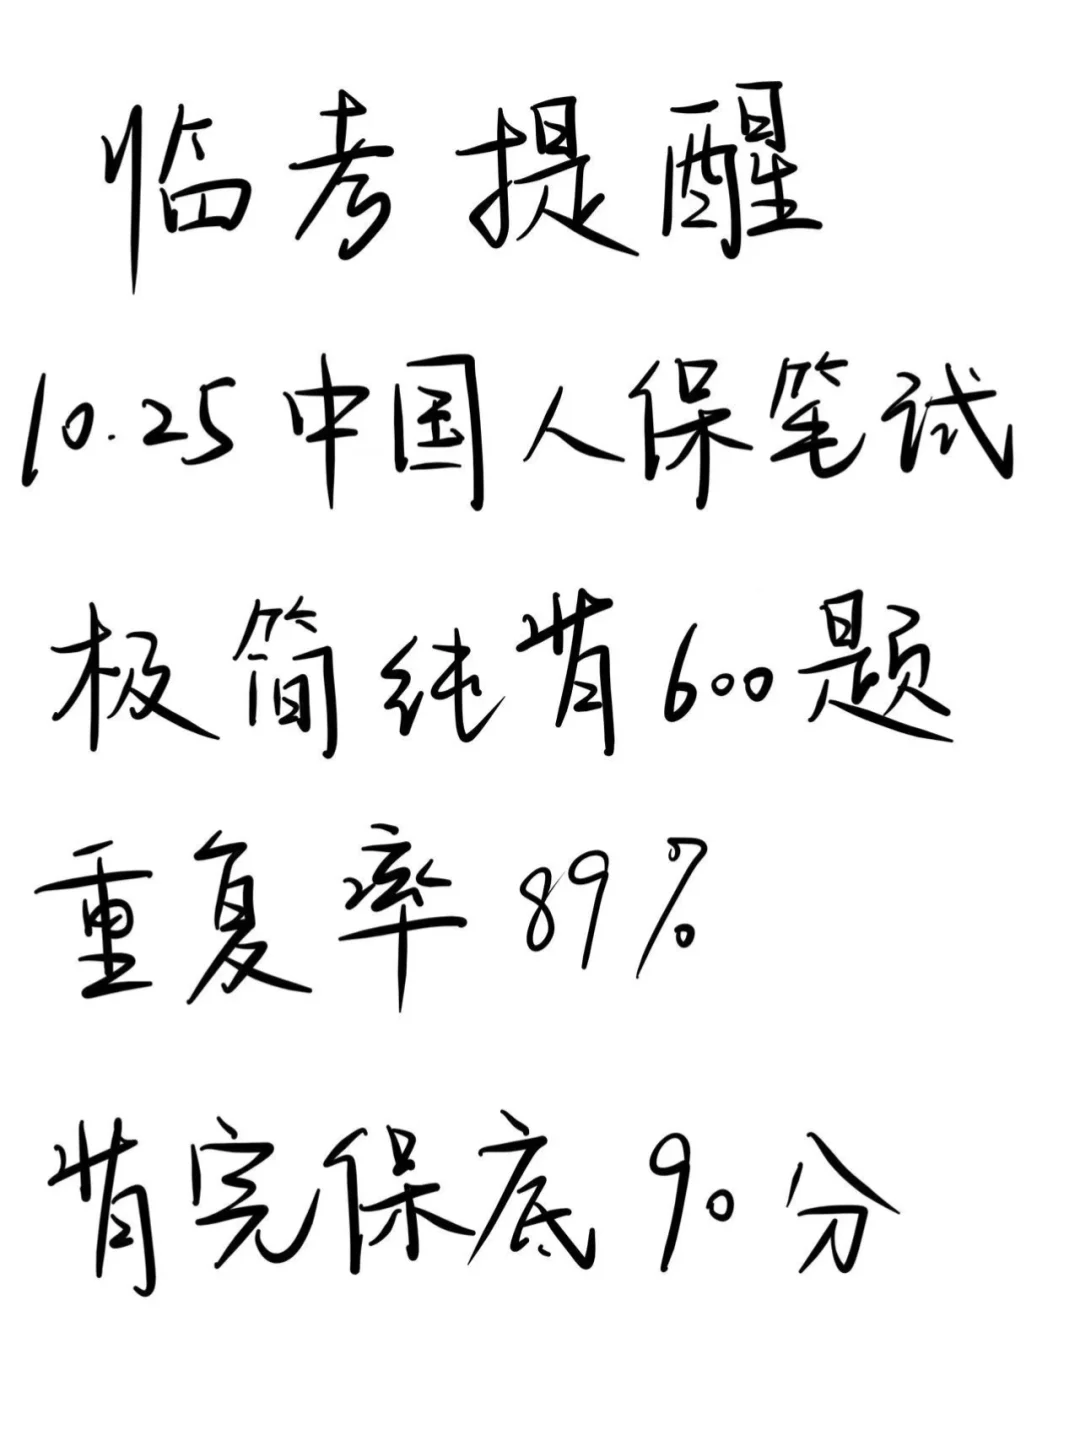 临考提醒
10.25中国人保笔试
极简纯背600题
重复率89%
背完保底90分